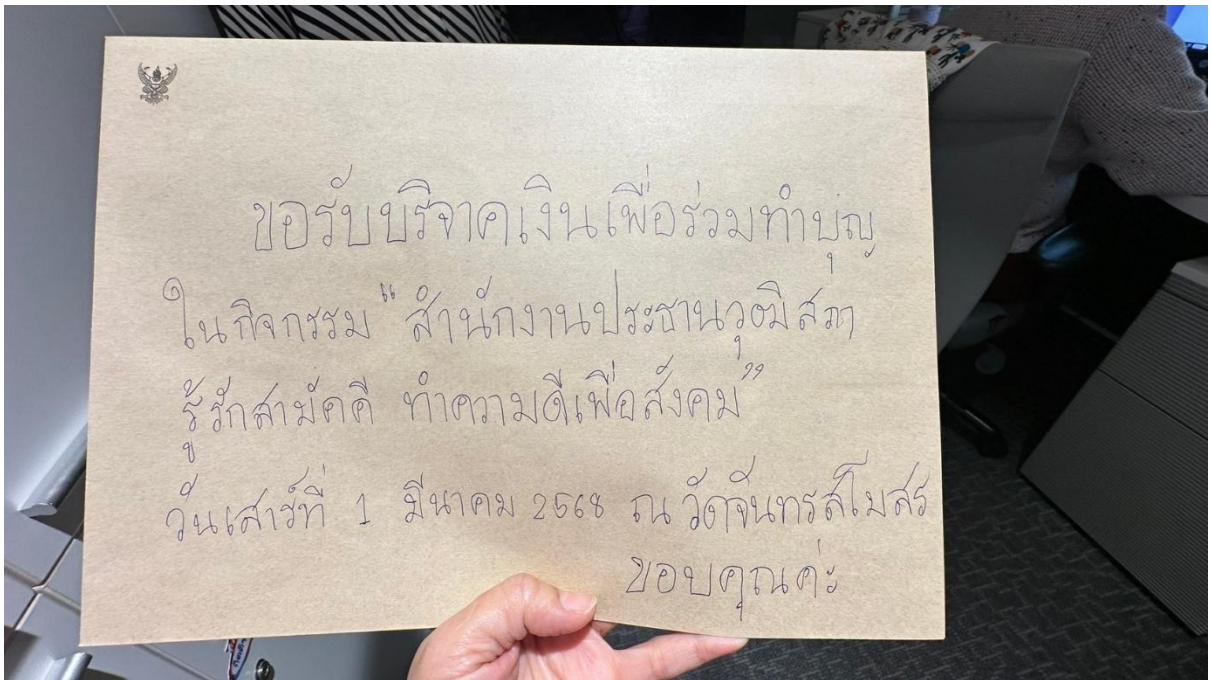 ขอรับบริจาคเงินเพื่อร่วมทำบุญ
ในกิจกรรม "สำนักงานประธานวุฒิสภา
รู้รักสามัคคี ทำความดีเพื่อสังคม"
วันเสาร์ที่ 1 มีนาคม 2568 ณ วัดจันทรสโมสร
ขอบคุณค่ะ